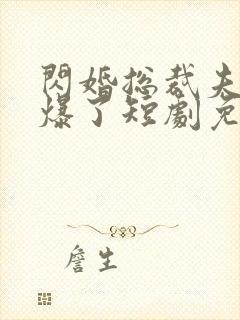 閃婚總裁夫
爆了短劇免
詹生